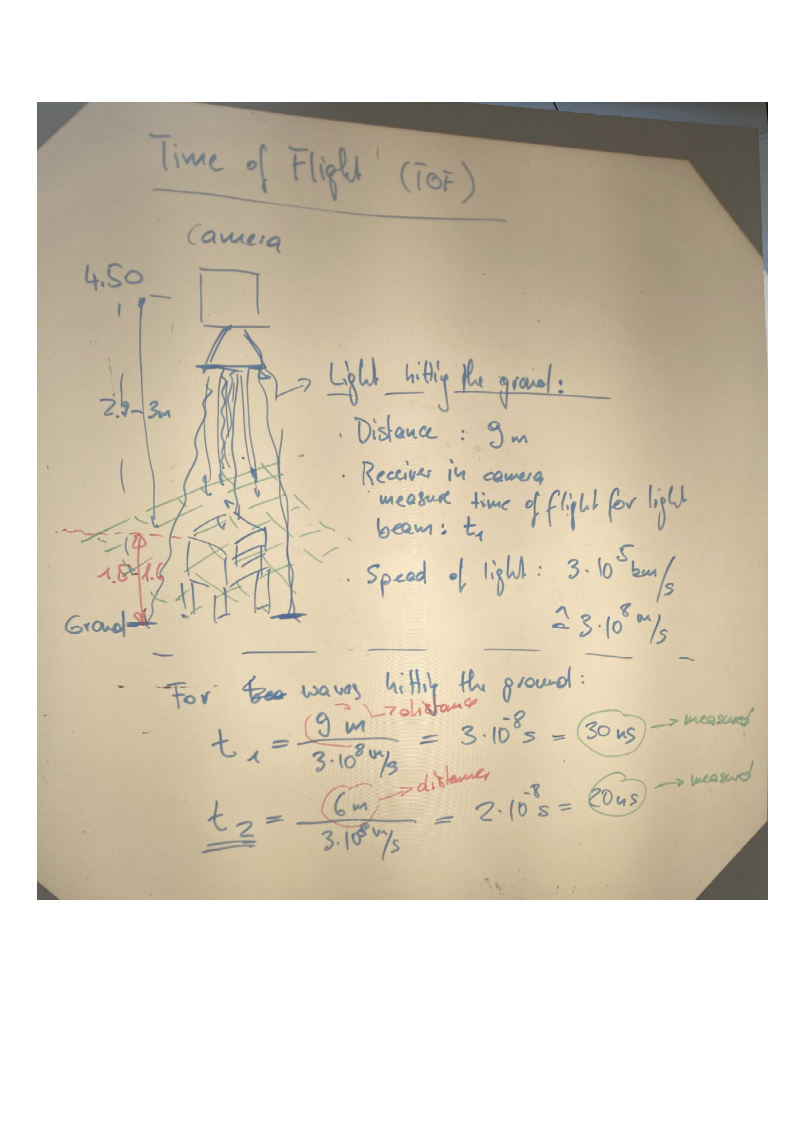 Time of Flight (TOF)
Camera
4.50
2.9-3m
Light hittig the ground:
· Distance : 9 m
· Receiver in camera
measure time of flight for light
beam: t₁
· Spead of light : 3·10⁵ km/s
≙ 3·10⁸ m/s
Ground
For waves hittig the ground:
t₁ = 9 m / 3·10⁸ m/s = 3·10⁻⁸ s = 30 ns → measured
→ distance
t₂ = 6 m / 3·10⁸ m/s = 2·10⁻⁸ s = 20 ns → measured
→ distance